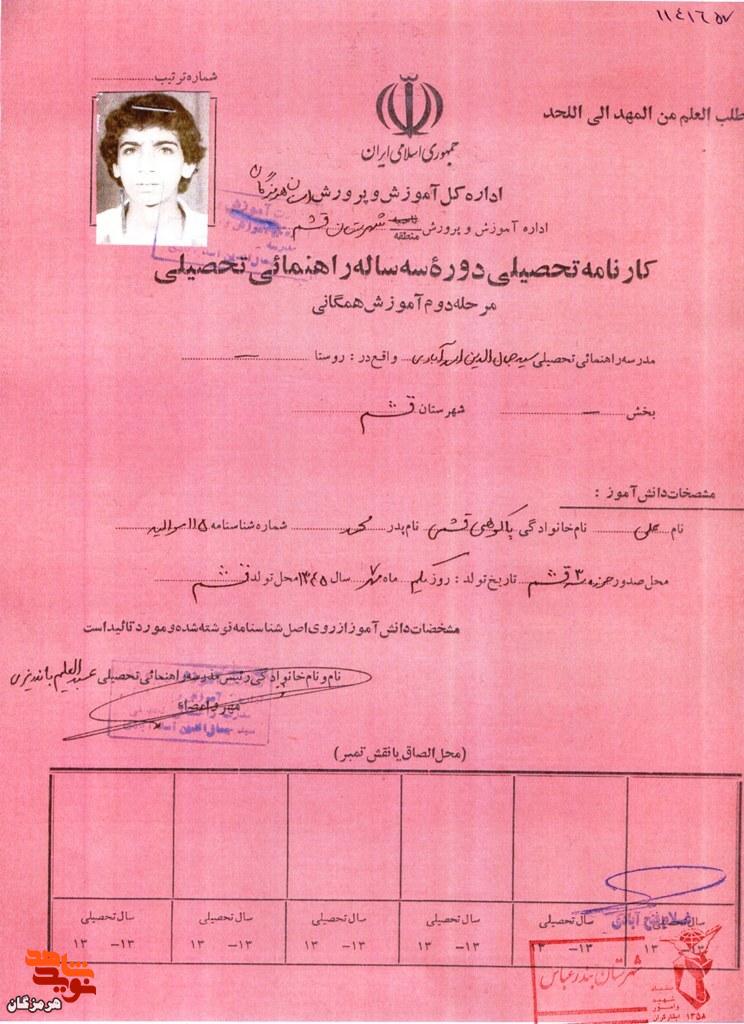 ۱۱۴۱۶۵۷
شماره ترتیب
طلب العلم من المهد الی اللحد
جمهوری اسلامی ایران
اداره کل آموزش و پرورش استان هرمزگان
اداره آموزش و پرورش ناحیه منطقه شهرستان قشم
کارنامه تحصیلی دورهٔ سه ساله راهنمائی تحصیلی
مرحله دوم آموزش همگانی
مدرسه راهنمائی تحصیلی سید جمال الدین اسدآبادی واقع در : روستا —
بخش — شهرستان قشم
مشخصات دانش آموز :
نام علی نام خانوادگی پاکوهی قشمی نام پدر محمد شماره شناسنامه ۱۱۵
محل صدور حوزه ۳ قشم تاریخ تولد : روز یکم ماه مهر سال ۱۳۴۵ محل تولد قشم
مشخصات دانش آموز از روی اصل شناسنامه نوشته شده و مورد تائید است
نام و نام خانوادگی رئیس مدرسه راهنمائی تحصیلی عبدالعلیم
مهر و امضاء
(محل الصاق یا نقش تمبر)
سال تحصیلی سال تحصیلی سال تحصیلی سال تحصیلی سال تحصیلی سال تحصیلی
۱۳– ۱۳ ۱۳– ۱۳ ۱۳– ۱۳ ۱۳– ۱۳ ۱۳– ۱۳ ۱۳– ۱۳
شهرستان بندرعباس
بنیاد
شهید
و امور
ایثارگران
۱۳۵۸
نوید شاهد
هرمزگان